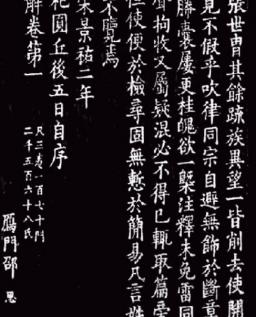 張世胄其餘疏族異望一皆削去使開
見不假乎吹律同宗自避無飾於斷章
勝囊屢更桂魄欲一槩注釋未免雷同
拘收又屬疑混必不得已輒取篇旁
使便於檢尋固無慙於簡易凡言姓
不覽焉
宋景祐二年
祀圓丘後五日自序
解卷第一
凡三卷一百七十門
二千五百六十八氏
鴈門邵 思